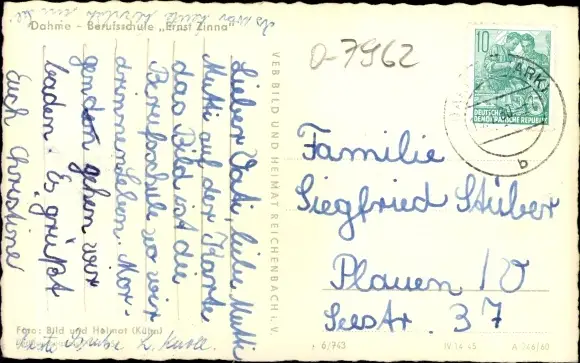 Dahme - Berufsschule „Ernst Zinna"
Lieber Vati, liebe Mutti
Mutti auf der Karte
das Bild ist die
Berufsschule wo wir
drinnen leben. Mor-
gendem gehen wir
baden. Es grüßt
Euch Christine
VEB BILD UND HEIMAT REICHENBACH i. V.
0-7962
10
DEUTSCHE
DEMOKRATISCHE REPUBLIK
b
Familie
Siegfried Stüber
Plauen / V
Seestr. 37
Foto: Bild und Heimat (Kühn)
6/743
IV 14 45
A